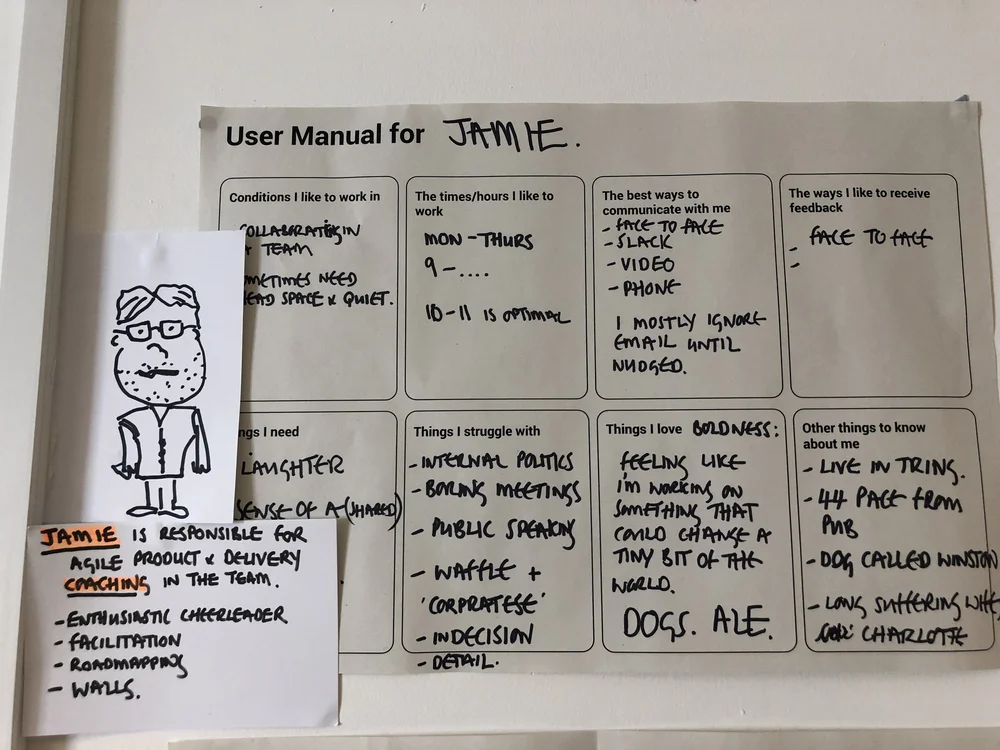 User Manual for JAMIE.
Conditions I like to work in
COLLABORATING IN
A TEAM
SOMETIMES NEED
HEAD SPACE & QUIET.
The times/hours I like to
work
MON - THURS
9 - ....
10 - 11 IS OPTIMAL
The best ways to
communicate with me
- FACE TO FACE
- SLACK
- VIDEO
- PHONE
I MOSTLY IGNORE
EMAIL UNTIL
NUDGED.
The ways I like to receive
feedback
- FACE TO FACE
-
ngs I need
LAUGHTER
SENSE OF A (SHARED)
Things I struggle with
- INTERNAL POLITICS
- BORING MEETINGS
- PUBLIC SPEAKING
- WAFFLE +
'CORPRATESE'
- INDECISION
- DETAIL.
Things I love BOLDNESS:
FEELING LIKE
I'M WORKING ON
SOMETHING THAT
COULD CHANGE A
TINY BIT OF THE
WORLD.
DOGS. ALE.
Other things to know
about me
- LIVE IN TRING.
- 44 PACE FROM
PUB
- DOG CALLED WINSTON
- LONG SUFFERING WIFE,
CHARLOTTE
JAMIE IS RESPONSIBLE FOR
AGILE PRODUCT & DELIVERY
COACHING IN THE TEAM.
- ENTHUSIASTIC CHEERLEADER
- FACILITATION
- ROADMAPPING
- WALLS.